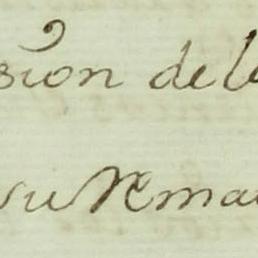 sion de l
su Rema